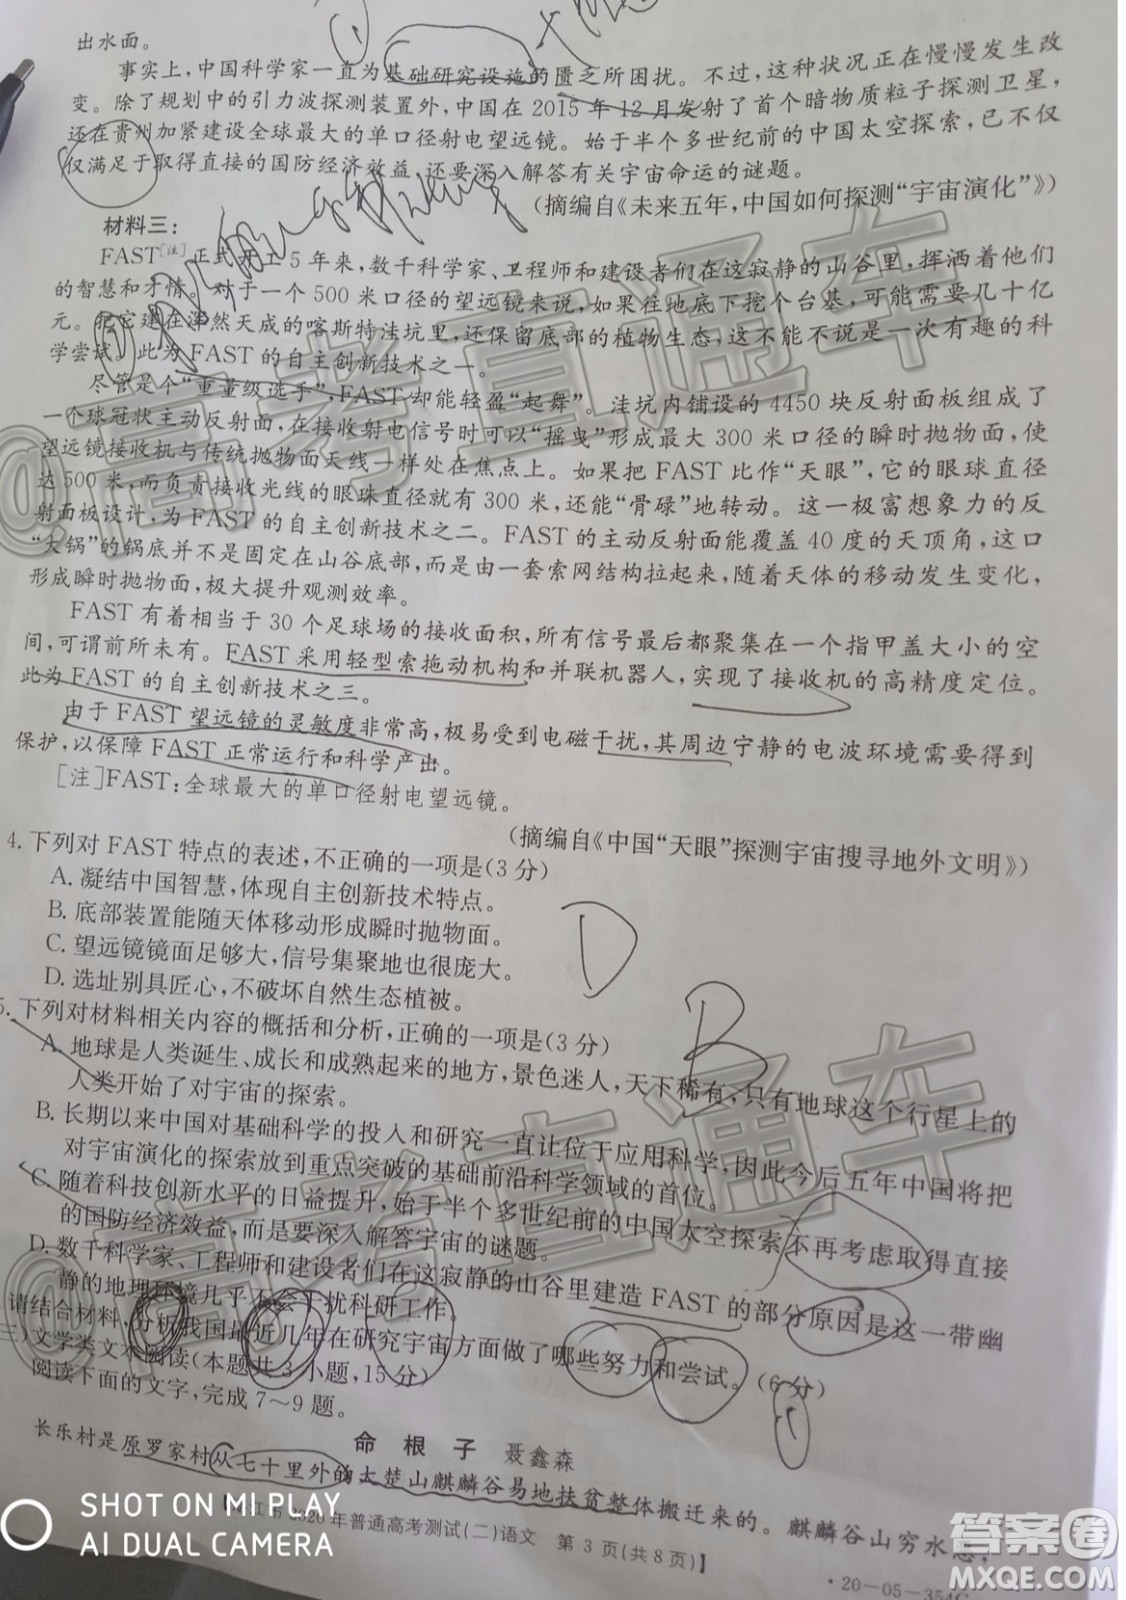 出水面。
事实上,中国科学家一直为基础研究设施的匮乏所困扰。不过,这种状况正在慢慢发生改
变。除了规划中的引力波探测装置外,中国在2015年12月发射了首个暗物质粒子探测卫星,
还在贵州加紧建设全球最大的单口径射电望远镜。始于半个多世纪前的中国太空探索,已不仅
仅满足于取得直接的国防经济效益,还要深入解答有关宇宙命运的谜题。
(摘编自《未来五年,中国如何探测“宇宙演化”》)
材料三:
FAST[注]正式开工5年来,数千科学家、工程师和建设者们在这寂静的山谷里,挥洒着他们
的智慧和才情。对于一个500米口径的望远镜来说,如果往地底下挖个台基,可能需要几十亿
元。把它建在浑然天成的喀斯特洼坑里,还保留底部的植物生态,这不能不说是一次有趣的科
学尝试。此为FAST的自主创新技术之一。
尽管是个“重量级选手”,FAST却能轻盈“起舞”。洼坑内铺设的4450块反射面板组成了
一个球冠状主动反射面,在接收射电信号时可以“摇曳”形成最大300米口径的瞬时抛物面,使
望远镜接收机与传统抛物面天线一样处在焦点上。如果把FAST比作“天眼”,它的眼球直径
达500米,而负责接收光线的眼珠直径就有300米,还能“骨碌”地转动。这一极富想象力的反
射面板设计,为FAST的自主创新技术之二。FAST的主动反射面能覆盖40度的天顶角,这口
“大锅”的锅底并不是固定在山谷底部,而是由一套索网结构拉起来,随着天体的移动发生变化,
形成瞬时抛物面,极大提升观测效率。
FAST有着相当于30个足球场的接收面积,所有信号最后都聚集在一个指甲盖大小的空
间,可谓前所未有。FAST采用轻型索拖动机构和并联机器人,实现了接收机的高精度定位。
此为FAST的自主创新技术之三。
由于FAST望远镜的灵敏度非常高,极易受到电磁干扰,其周边宁静的电波环境需要得到
保护,以保障FAST正常运行和科学产出。
[注]FAST:全球最大的单口径射电望远镜。
(摘编自《中国“天眼”探测宇宙搜寻地外文明》)
4.下列对FAST特点的表述,不正确的一项是(3分)
A.凝结中国智慧,体现自主创新技术特点。
B.底部装置能随天体移动形成瞬时抛物面。
C.望远镜镜面足够大,信号集聚地也很庞大。
D.选址别具匠心,不破坏自然生态植被。
D
5.下列对材料相关内容的概括和分析,正确的一项是(3分)
B
A.地球是人类诞生、成长和成熟起来的地方,景色迷人,天下稀有,只有地球这个行星上的
人类开始了对宇宙的探索。
B.长期以来中国对基础科学的投入和研究一直让位于应用科学,因此今后五年中国将把
对宇宙演化的探索放到重点突破的基础前沿科学领域的首位。
C.随着科技创新水平的日益提升,始于半个多世纪前的中国太空探索不再考虑取得直接
的国防经济效益,而是要深入解答宇宙的谜题。
D.数千科学家、工程师和建设者们在这寂静的山谷里建造FAST的部分原因是这一带幽
静的地理环境几乎不会干扰科研工作。
请结合材料,分析我国最近几年在研究宇宙方面做了哪些努力和尝试。(6分)
三)文学类文本阅读(本题共3小题,15分)
阅读下面的文字,完成7~9题。
命根子 聂鑫森
长乐村是原罗家村从七十里外的大楚山麒麟谷易地扶贫整体搬迁来的。麒麟谷山穷水恶,
江市2020年普通高考测试(二)语文 第3页(共8页)】
·20-05-354C
@高考直通车
@高考直通车
SHOT ON MI PLAY
AI DUAL CAMERA
答案圈
MXQE.COM